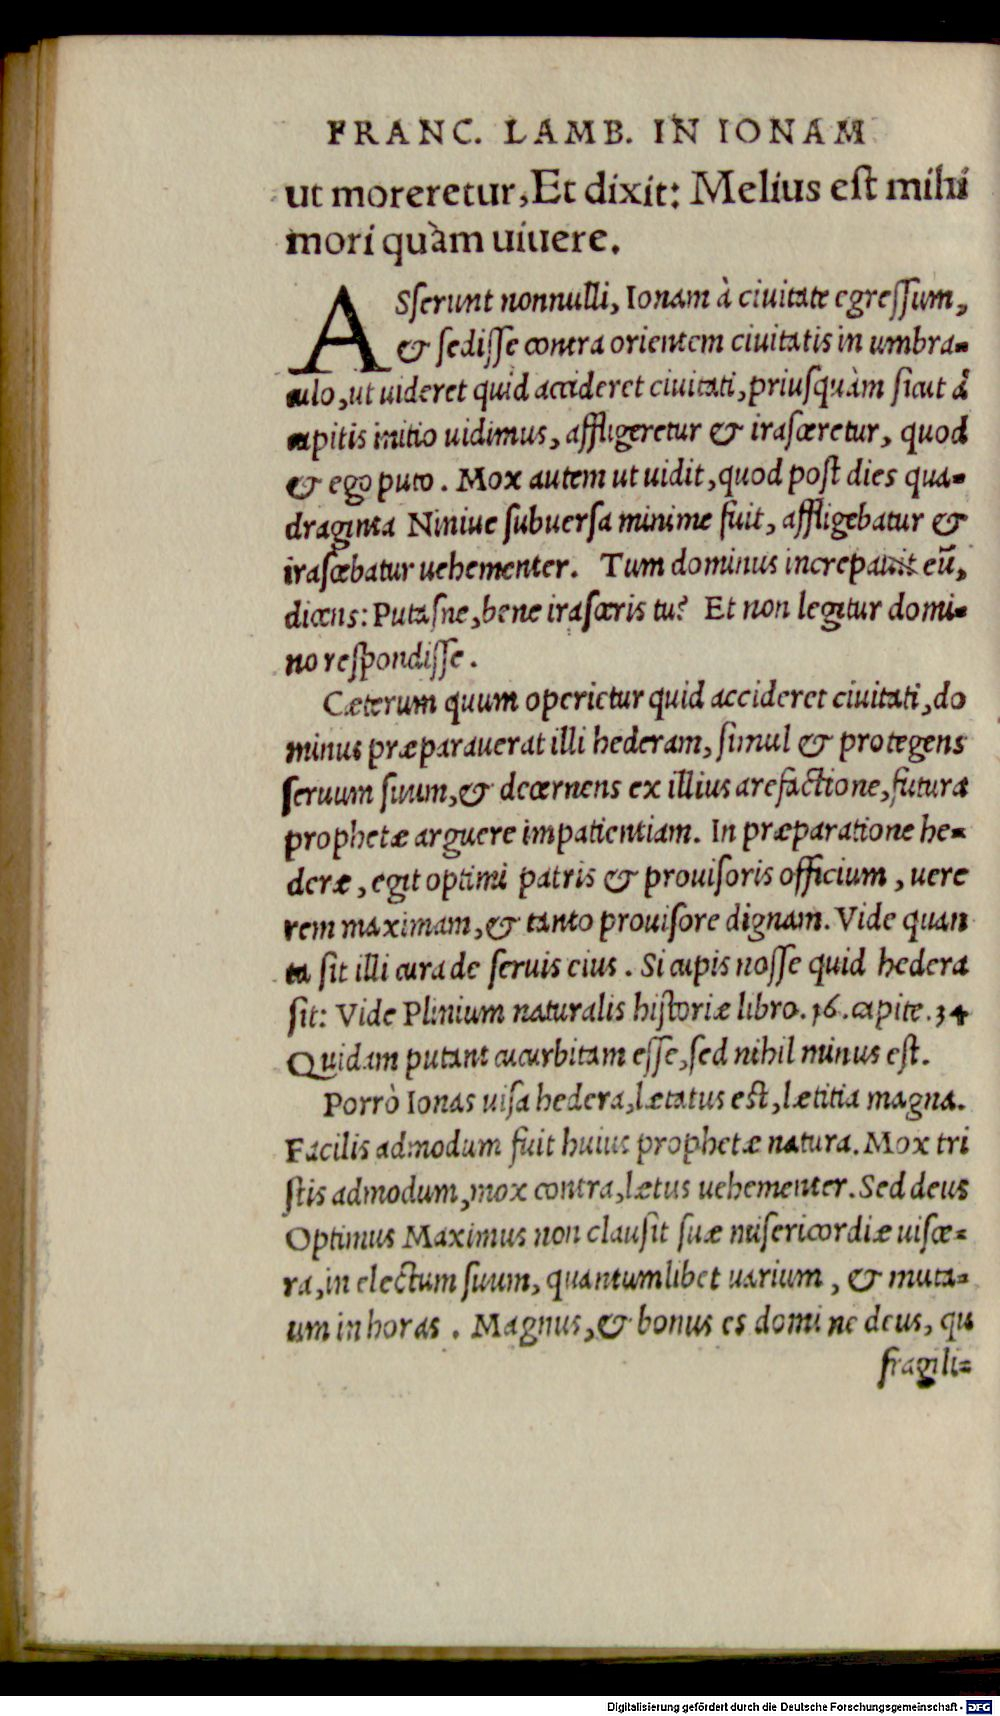 FRANC. LAMB. IN IONAM
ut moreretur, Et dixit: Melius eſt mihi
mori quàm uiuere.
ASſerunt nonnulli, Ionam à ciuitate egreſſum,
& ſediſſe contra orientem ciuitatis in umbra-
culo, ut uideret quid accideret ciuitati, priuſquàm ſicut à
capitis initio uidimus, affligeretur & iraſceretur, quod
& ego puto. Mox autem ut uidit, quod poſt dies qua-
draginta Niniue ſubuerſa minime fuit, affligebatur &
iraſcebatur uehementer. Tum dominus increpauit eū,
dicens: Putáſne, bene iraſceris tu? Et non legitur domi-
no reſpondiſſe.
Cæterum quum operietur quid accideret ciuitati, do
minus præparauerat illi hederam, ſimul & protegens
ſeruum ſuum, & decernens ex illius arefactione, futura
prophetæ arguere impatientiam. In præparatione he-
deræ, egit optimi patris & prouiſoris officium, uere
rem maximam, & tanto prouiſore dignam. Vide quan
ta ſit illi cura de ſeruis eius. Si cupis noſſe quid hedera
ſit: Vide Plinium naturalis hiſtoriæ libro. 16. capite. 34
Quidam putant cucurbitam eſſe, ſed nihil minus eſt.
Porrò Ionas uiſa hedera, lætatus eſt, lætitia magna.
Facilis admodum fuit huius prophetæ natura. Mox tri
ſtis admodum, mox contra, lætus uehementer. Sed deus
Optimus Maximus non clauſit ſuæ miſericordiæ uiſce-
ra, in electum ſuum, quantumlibet uarium, & muta-
um in horas. Magnus, & bonus es domine deus, qu
fragili-
Digitalisierung gefördert durch die Deutsche Forschungsgemeinschaft - DFG